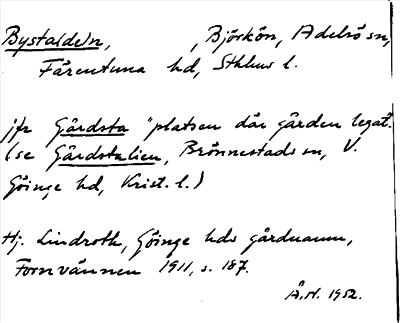 Bysta(de)n, , Björkön, Adelsö sn,
Färentuna hd, Sthlms l.
jfr Gårdsta "platsen där gården legat."
(se Gårdstalien, Brönnestads sn, V.
Göinge hd, Krist. l.)
Hj. Lindroth, Göinge hds gårdnamn,
Fornvännen 1911, s. 187.
Å.N. 1952.